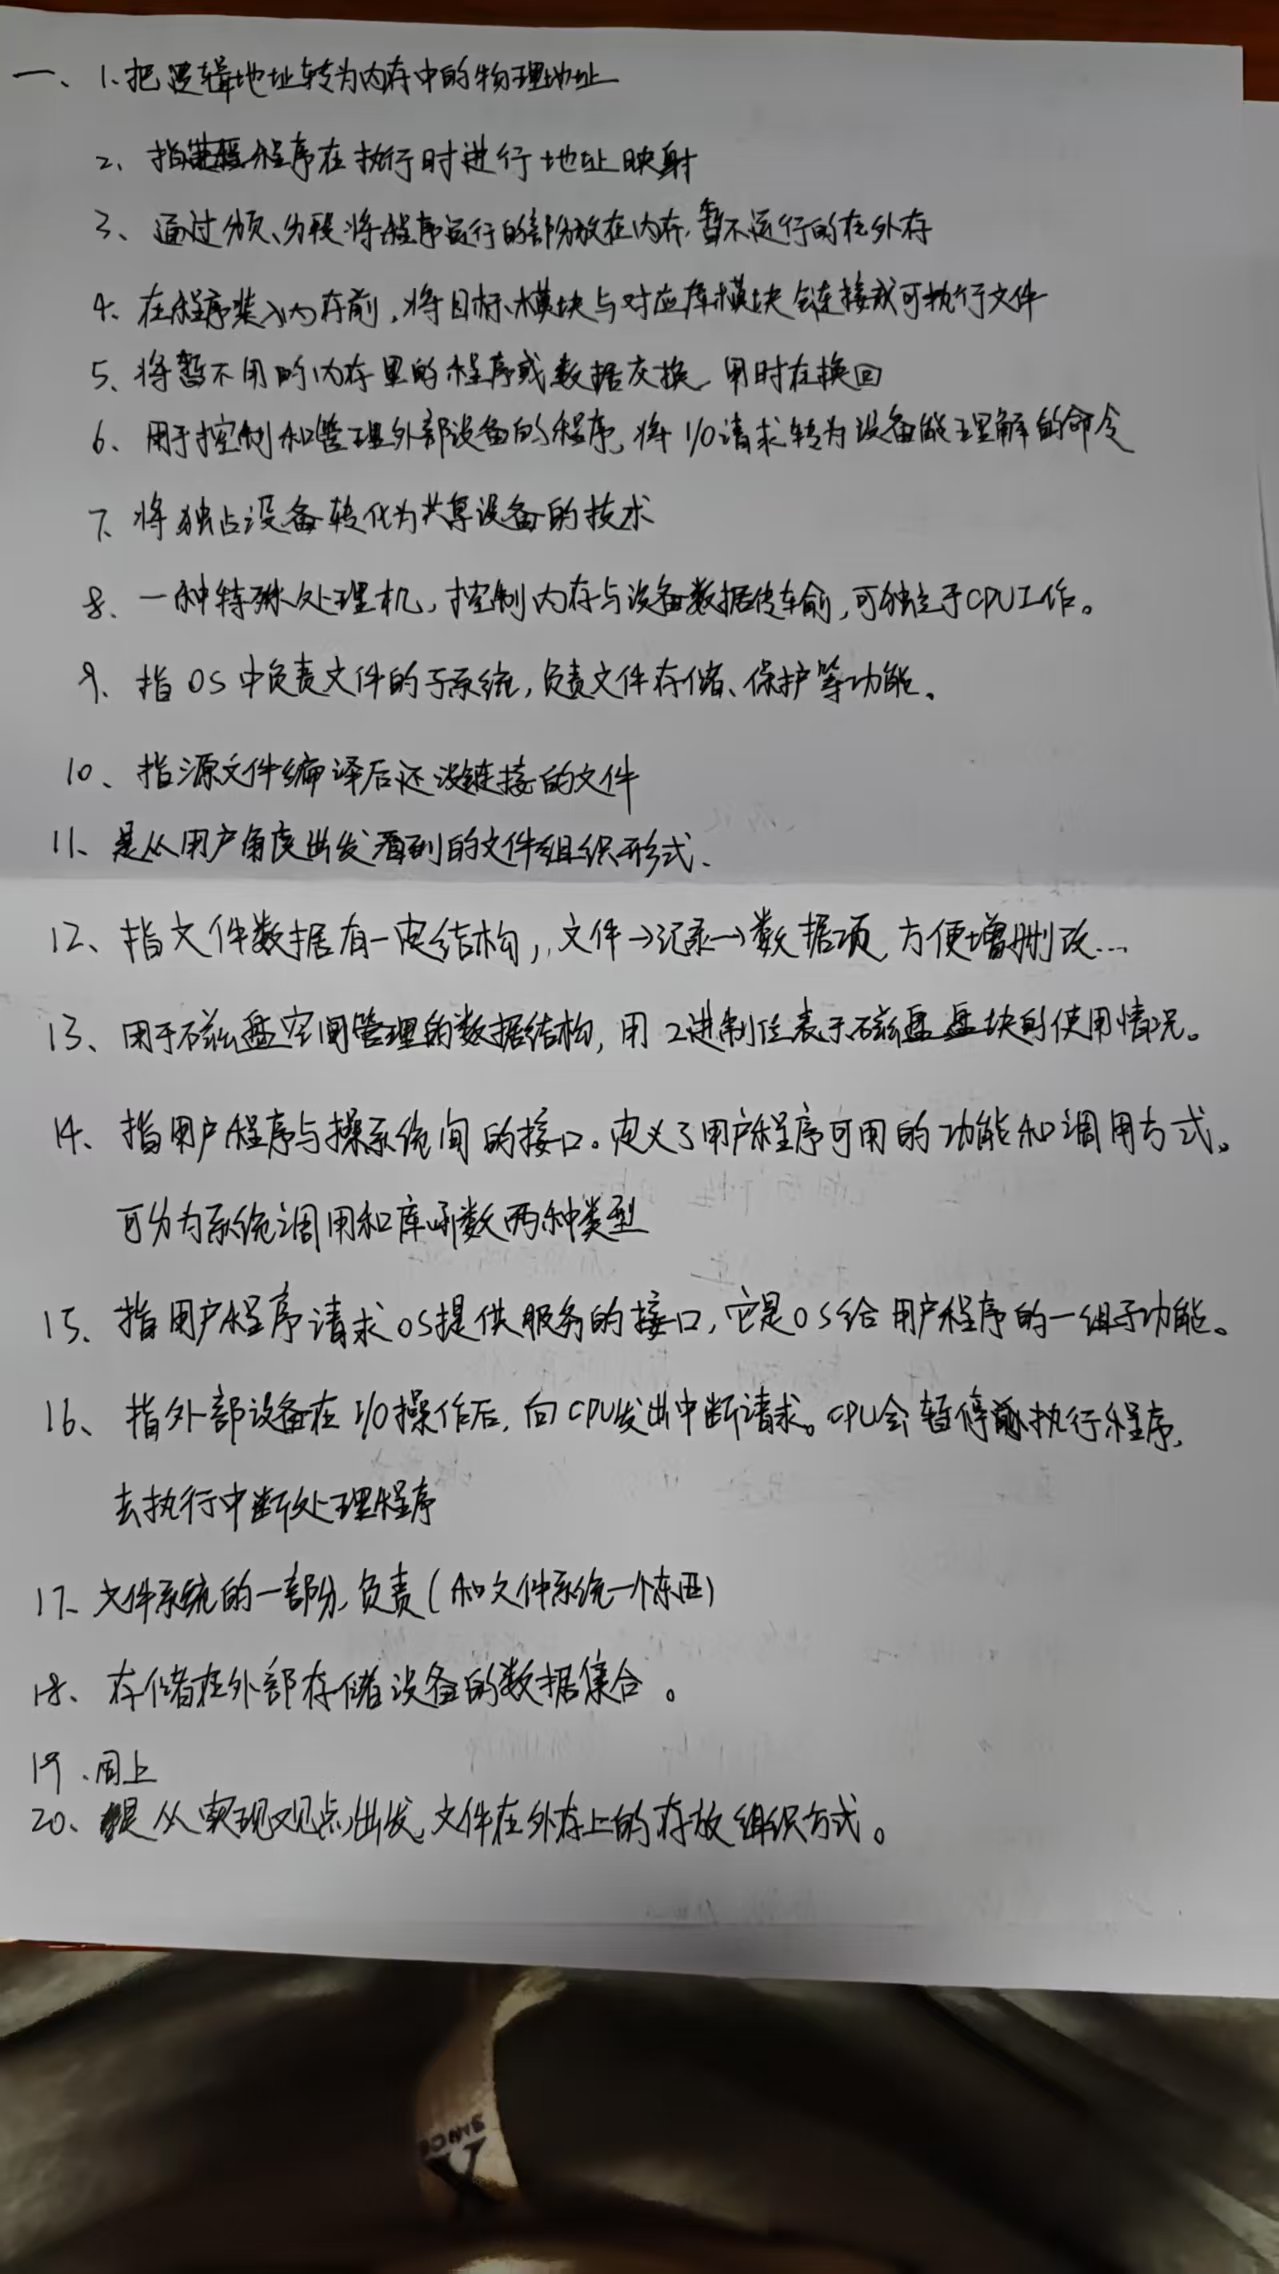 一、1、把逻辑地址转为内存中的物理地址
2、指程序在执行时进行地址映射
3、通过分页、分段将程序运行的部分放在内存,暂不运行的在外存
4、在程序装入内存前,将目标模块与对应库模块链接成可执行文件
5、将暂不用的内存里的程序或数据交换,用时在换回
6、用于控制和管理外部设备的程序,将I/O请求转为设备能理解的命令
7、将独占设备转化为共享设备的技术
8、一种特殊处理机,控制内存与设备数据传输,可独立于CPU工作。
9、指OS中负责文件的子系统,负责文件存储、保护等功能。
10、指源文件编译后还没链接的文件
11、是从用户角度出发看到的文件组织形式、
12、指文件数据有一定结构,文件→记录→数据项,方便增删改...
13、用于磁盘空间管理的数据结构,用2进制位表示磁盘盘块的使用情况。
14、指用户程序与操系统间的接口。定义了用户程序可用的功能和调用方式。
可分为系统调用和库函数两种类型
15、指用户程序请求OS提供服务的接口,它是OS给用户程序的一组子功能。
16、指外部设备在I/O操作后,向CPU发出中断请求。CPU会暂停执行程序,
去执行中断处理程序
17、文件系统的一部分,负责(和文件系统一个东西)
18、存储在外部存储设备的数据集合。
19、同上
20、是从实现观点出发,文件在外存上的存放组织方式。
SINCE
X